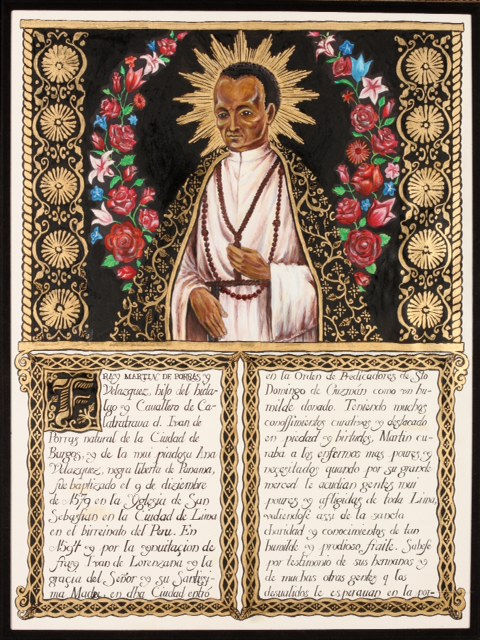 FRAY MARTIN DE PORRAS, y
Velazquez, hijo del hidal-
go y Cavallero de Ca-
latrabana d. Ivan de
Porras natural de la Ciudad de
Burgos, y de la mui piadosa Ana
Velazquez, negra liberta de Panama,
fue baptizado el 9 de diziembre
de 1579 en la Yglesia de San
Sebastian en la Ciudad de Lima
en el birreinato del Peru. En
y por la
fray Ivan de Lorenzana y la
gracia del Señor y su Santissi-
ma Madre en dha Ciudad entró
en la Orden de Predicadores de Sto
Domingo de Guzmán como un hu-
milde donado. Teniendo muchos
conossimientos curativos y destacado
en piedad y birtudes, Martin cu-
raba a los enfermos mas poures y
necesitados quando por su grande
merced le acudian gentes mui
poures y afligidas de toda Lima,
valiendose assi de la sancta
charidad y conocimientos de tan
humilde y prodixoso fraile. Sabese
por testimonio de sus hermanos y
de muchas otras gentes q los
desualidos le esperauan en la por-